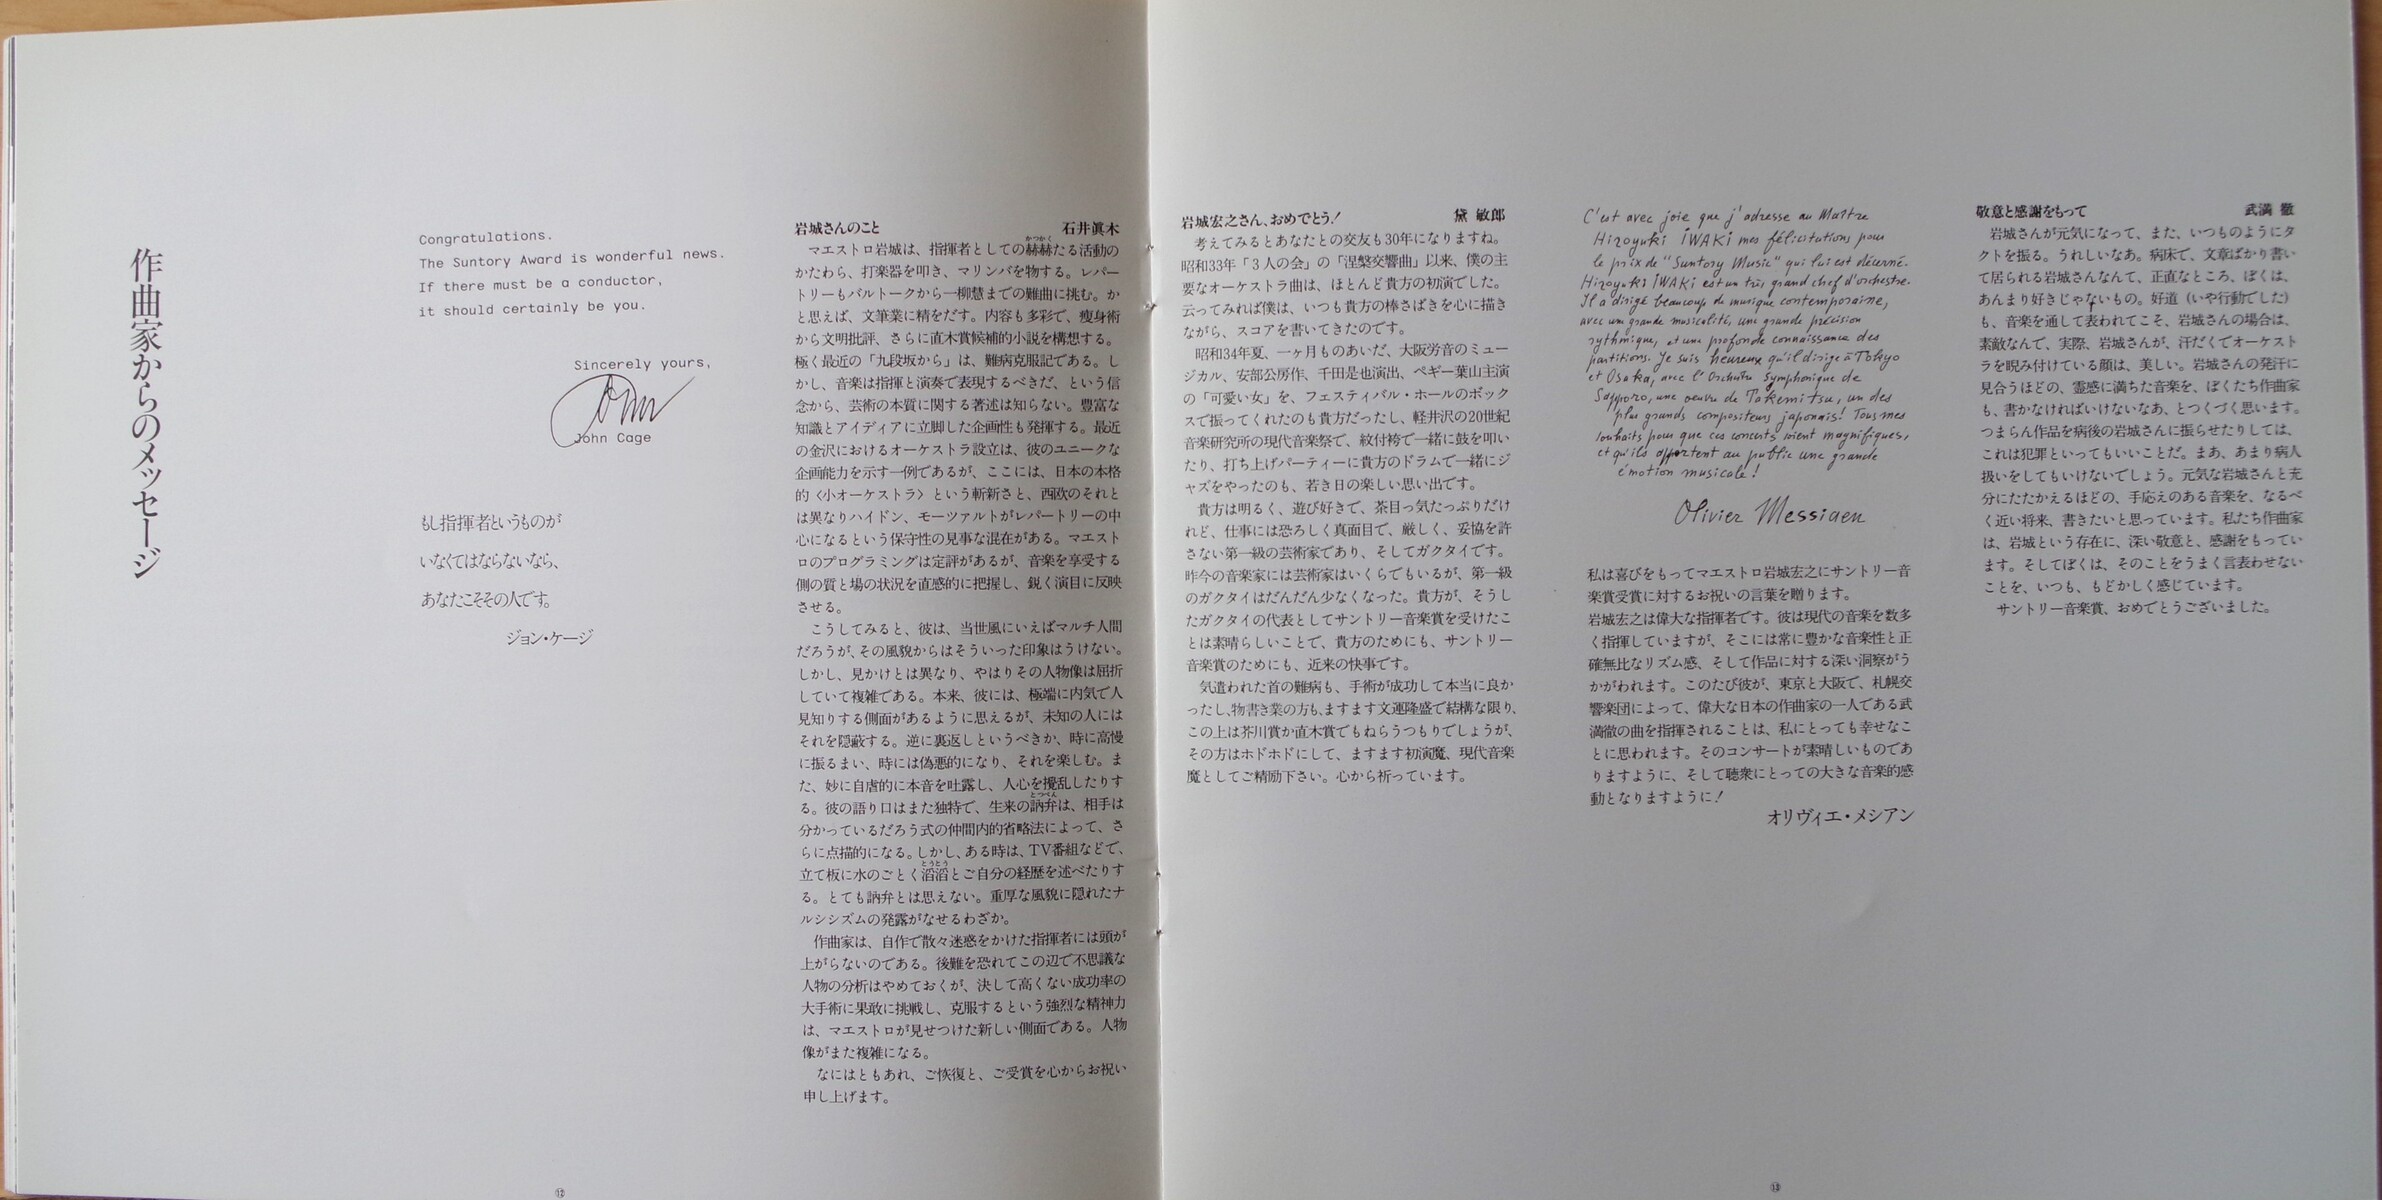 作曲家からのメッセージ
Congratulations.
The Suntory Award is wonderful news.
If there must be a conductor,
it should certainly be you.
Sincerely yours,
John
John Cage
もし指揮者というものが
いなくてはならないなら、
あなたこそその人です。
ジョン・ケージ
岩城さんのこと 石井眞木
マエストロ岩城は、指揮者としての赫赫たる活動の
かつかく
かたわら、打楽器を叩き、マリンバを物する。レパー
トリーもバルトークから一柳慧までの難曲に挑む。か
と思えば、文筆業に精をだす。内容も多彩で、痩身術
から文明批評、さらに直木賞候補的小説を構想する。
極く最近の「九段坂から」は、難病克服記である。し
かし、音楽は指揮と演奏で表現するべきだ、という信
念から、芸術の本質に関する著述は知らない。豊富な
知識とアイディアに立脚した企画性も発揮する。最近
の金沢におけるオーケストラ設立は、彼のユニークな
企画能力を示す一例であるが、ここには、日本の本格
的〈小オーケストラ〉という斬新さと、西欧のそれと
は異なりハイドン、モーツァルトがレパートリーの中
心になるという保守性の見事な混在がある。マエスト
ロのプログラミングは定評があるが、音楽を享受する
側の質と場の状況を直感的に把握し、鋭く演目に反映
させる。
こうしてみると、彼は、当世風にいえばマルチ人間
だろうが、その風貌からはそういった印象はうけない。
しかし、見かけとは異なり、やはりその人物像は屈折
していて複雑である。本来、彼には、極端に内気で人
見知りする側面があるように思えるが、未知の人には
それを隠蔽する。逆に裏返しというべきか、時に高慢
に振るまい、時には偽悪的になり、それを楽しむ。ま
た、妙に自虐的に本音を吐露し、人心を攪乱したりす
る。彼の語り口はまた独特で、生来の訥弁は、相手は
とつべん
分かっているだろう式の仲間内的省略法によって、さ
らに点描的になる。しかし、ある時は、TV番組などで、
立て板に水のごとく滔滔とご自分の経歴を述べたりす
とうとう
る。とても訥弁とは思えない。重厚な風貌に隠れたナ
ルシシズムの発露がなせるわざか。
作曲家は、自作で散々迷惑をかけた指揮者には頭が
上がらないのである。後難を恐れてこの辺で不思議な
人物の分析はやめておくが、決して高くない成功率の
大手術に果敢に挑戦し、克服するという強烈な精神力
は、マエストロが見せつけた新しい側面である。人物
像がまた複雑になる。
なにはともあれ、ご恢復と、ご受賞を心からお祝い
申し上げます。
⑫
岩城宏之さん、おめでとう! 黛 敏郎
考えてみるとあなたとの交友も30年になりますね。
昭和33年「3人の会」の「涅槃交響曲」以来、僕の主
要なオーケストラ曲は、ほとんど貴方の初演でした。
云ってみれば僕は、いつも貴方の棒さばきを心に描き
ながら、スコアを書いてきたのです。
昭和34年夏、一ヶ月ものあいだ、大阪労音のミュー
ジカル、安部公房作、千田是也演出、ペギー葉山主演
の「可愛い女」を、フェスティバル・ホールのボック
スで振ってくれたのも貴方だったし、軽井沢の20世紀
音楽研究所の現代音楽祭で、紋付袴で一緒に鼓を叩い
たり、打ち上げパーティーに貴方のドラムで一緒にジ
ャズをやったのも、若き日の楽しい思い出です。
貴方は明るく、遊び好きで、茶目っ気たっぷりだけ
れど、仕事には恐ろしく真面目で、厳しく、妥協を許
さない第一級の芸術家であり、そしてガクタイです。
昨今の音楽家には芸術家はいくらでもいるが、第一級
のガクタイはだんだん少なくなった。貴方が、そうし
たガクタイの代表としてサントリー音楽賞を受けたこ
とは素晴らしいことで、貴方のためにも、サントリー
音楽賞のためにも、近来の快事です。
気遣われた首の難病も、手術が成功して本当に良か
ったし、物書き業の方も、ますます文運隆盛で結構な限り、
この上は芥川賞か直木賞でもねらうつもりでしょうが、
その方はホドホドにして、ますます初演魔、現代音楽
魔としてご精励下さい。心から祈っています。
C'est avec joie que j'adresse au Maître
Hiroyuki IWAKI mes félicitations pour
le prix de "Suntory Music" qui lui est décerné.
Hiroyuki IWAKI est un très grand chef d'orchestre.
Il a dirigé beaucoup de musique contemporaine,
avec une grande musicalité, une grande précision
rythmique, et une profonde connaissance des
partitions. Je suis heureux qu'il dirige à Tokyo
et Osaka, avec l'Orchestre Symphonique de
Sapporo, une oeuvre de Takemitsu, un des
plus grands compositeurs japonais! Tous mes
souhaits pour que ces concerts soient magnifiques,
et qu'ils apportent au public une grande
émotion musicale!
Olivier Messiaen
私は喜びをもってマエストロ岩城宏之にサントリー音
楽賞受賞に対するお祝いの言葉を贈ります。
岩城宏之は偉大な指揮者です。彼は現代の音楽を数多
く指揮していますが、そこには常に豊かな音楽性と正
確無比なリズム感、そして作品に対する深い洞察がう
かがわれます。このたび彼が、東京と大阪で、札幌交
響楽団によって、偉大な日本の作曲家の一人である武
満徹の曲を指揮されることは、私にとっても幸せなこ
とに思われます。そのコンサートが素晴しいものであ
りますように、そして聴衆にとっての大きな音楽的感
動となりますように!
オリヴィエ・メシアン
敬意と感謝をもって 武満 徹
岩城さんが元気になって、また、いつものようにタ
クトを振る。うれしいなあ。病床で、文章ばかり書い
て居られる岩城さんなんて、正直なところ、ぼくは、
あんまり好きじゃないもの。好道(いや行動でした)
も、音楽を通して表われてこそ、岩城さんの場合は、
素敵なんで、実際、岩城さんが、汗だくでオーケスト
ラを睨み付けている顔は、美しい。岩城さんの発汗に
見合うほどの、霊感に満ちた音楽を、ぼくたち作曲家
も、書かなければいけないなあ、とつくづく思います。
つまらん作品を病後の岩城さんに振らせたりしては、
これは犯罪といってもいいことだ。まあ、あまり病人
扱いをしてもいけないでしょう。元気な岩城さんと充
分にたたかえるほどの、手応えのある音楽を、なるべ
く近い将来、書きたいと思っています。私たち作曲家
は、岩城という存在に、深い敬意と、感謝をもってい
ます。そしてぼくは、そのことをうまく言表わせない
ことを、いつも、もどかしく感じています。
サントリー音楽賞、おめでとうございました。
⑬